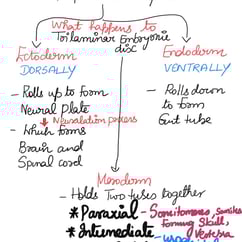 What happens to
Toilaminer Embryonic
disc
Ectoderm
DORSALLY
- Rolls up to form
Neural Plate
Neurulation process
- Which forms
Brain and
Spinal cord
Endoderm
VENTRALLY
- Rolls down
to form
Gut tube
Mesoderm
- Holds Two tubes together
* Paraxial - Somitomeres, Somites
forming Skull,
Vertebra
* Intermediate -